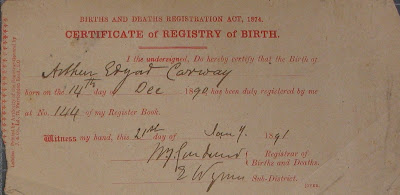 BIRTHS AND DEATHS REGISTRATION ACT, 1874.
CERTIFICATE of REGISTRY of BIRTH.
I the undersigned, Do hereby certify that the Birth of
Arthur Edgar Carway
born on the 14th day of Dec 1890 has been duly registered by me
at No. 144 of my Register Book.
Witness my hand, this 21st day of Jany. 1891
Registrar of
Births and Deaths.
Sub-District.